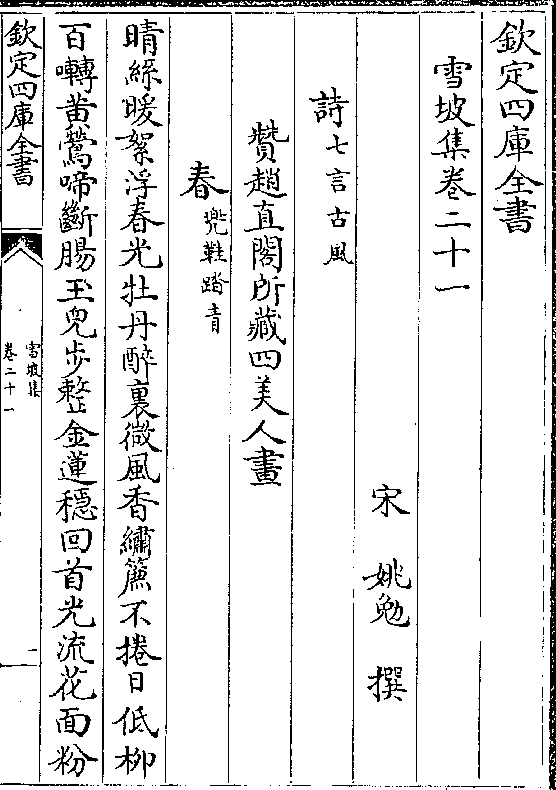 欽定四庫全書
雪坡集卷二十一
宋 姚勉 撰
詩七言古風
贊趙直閣所藏四美人畫
春兜鞋踏青
晴絲暖絮浮春光牡丹醉裏微風香繡簾不捲日低柳
百囀黄鶯啼斷腸玉兒步整金蓮穩回首光流花面粉
欽定四庫全書
雪坡集
卷二十一
一